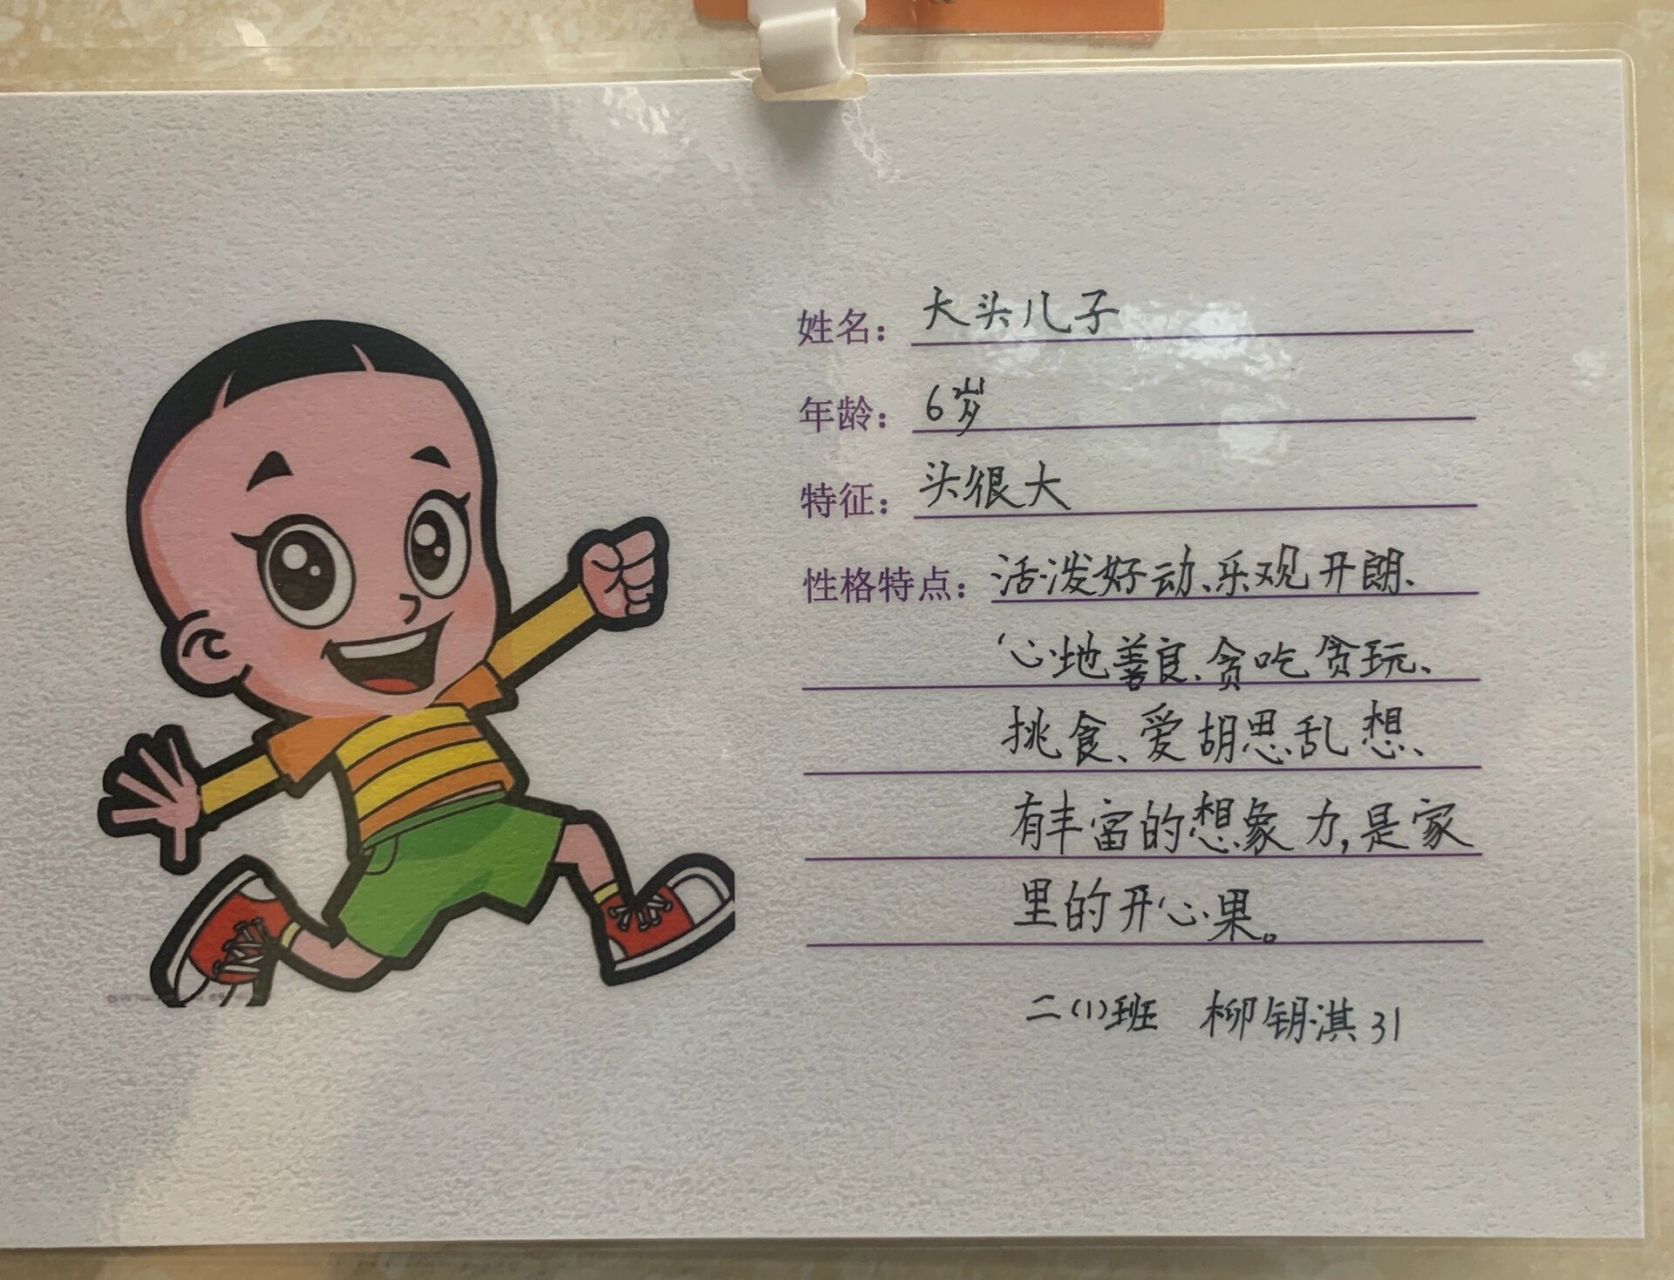 姓名：大头儿子
年龄：6岁
特征：头很大
性格特点：活泼好动、乐观开朗、
心地善良、贪吃贪玩、
挑食、爱胡思乱想、
有丰富的想象力,是家
里的开心果。
二(1)班 柳钥淇 31